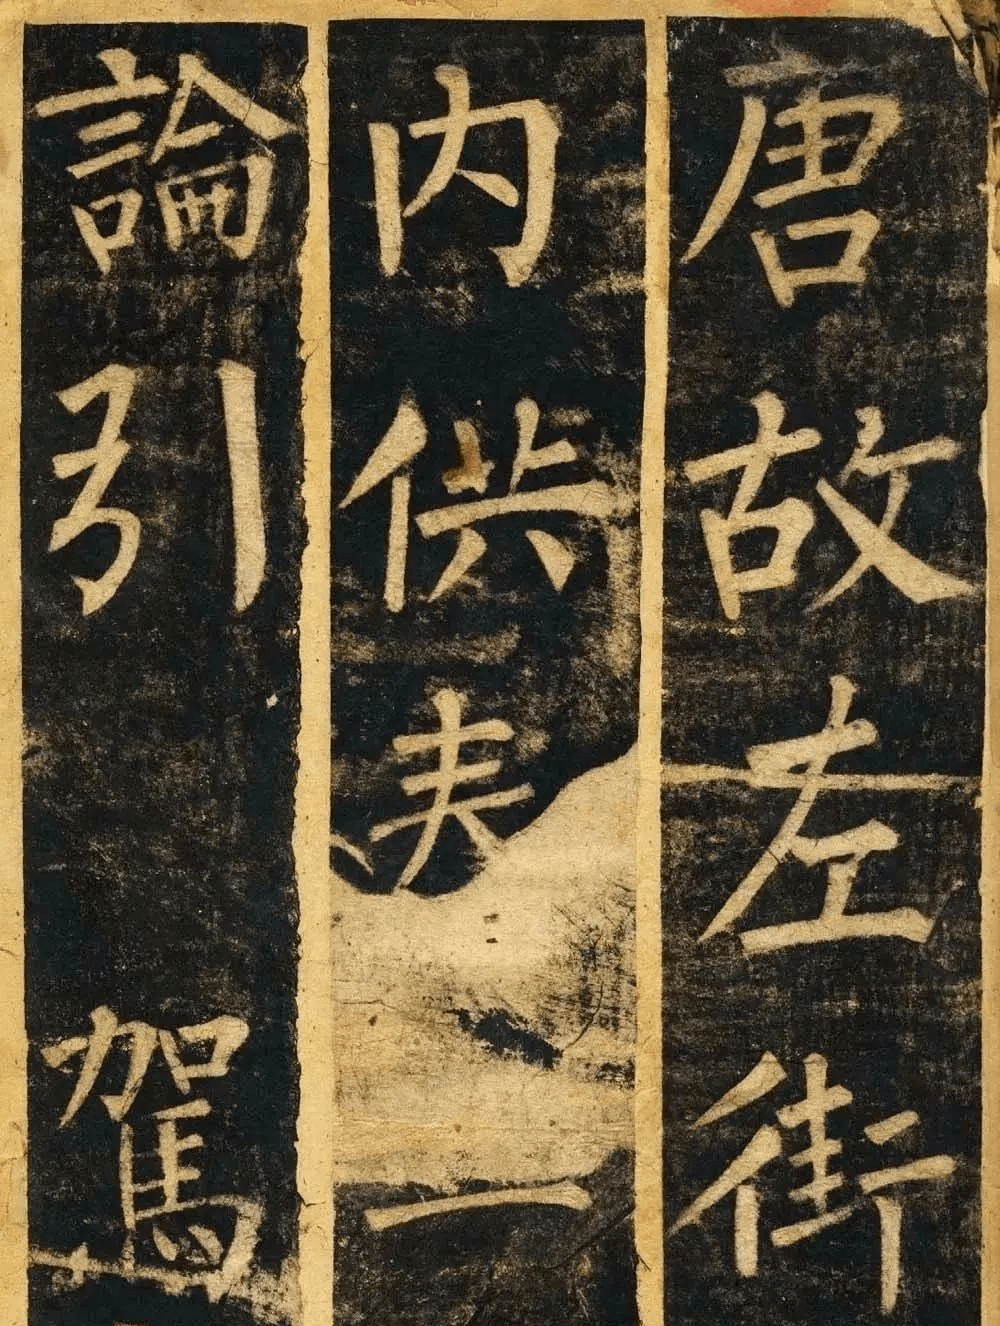 唐故左街
内供奉
論引駕